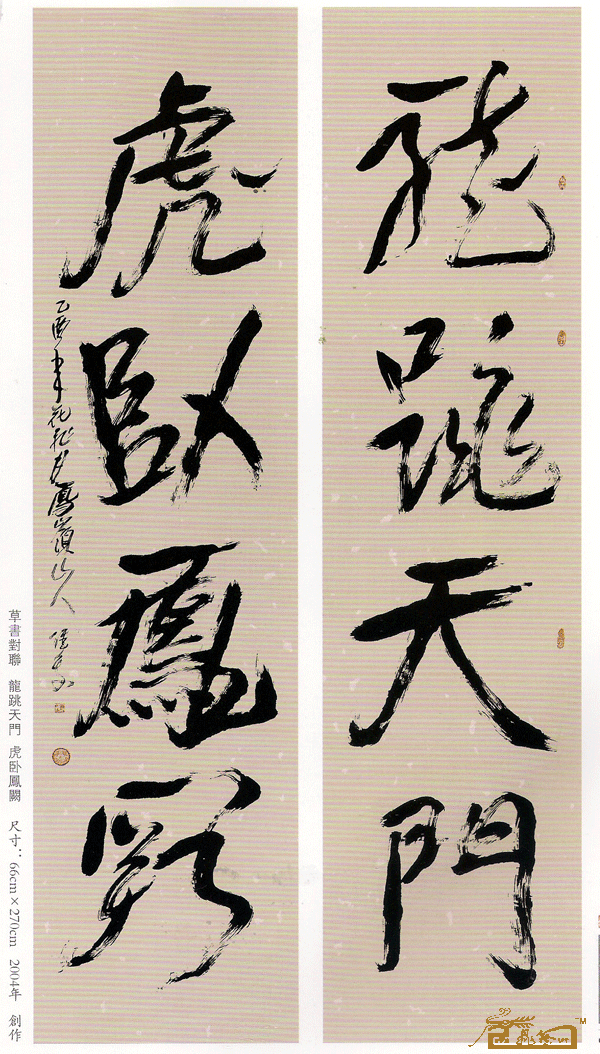 龍跳天門
虎卧鳳闕
乙酉年花朝月鳳嶺山人
草書對聯 龍跳天門 虎卧鳳闕 尺寸：66cm×270cm 2004年 創作